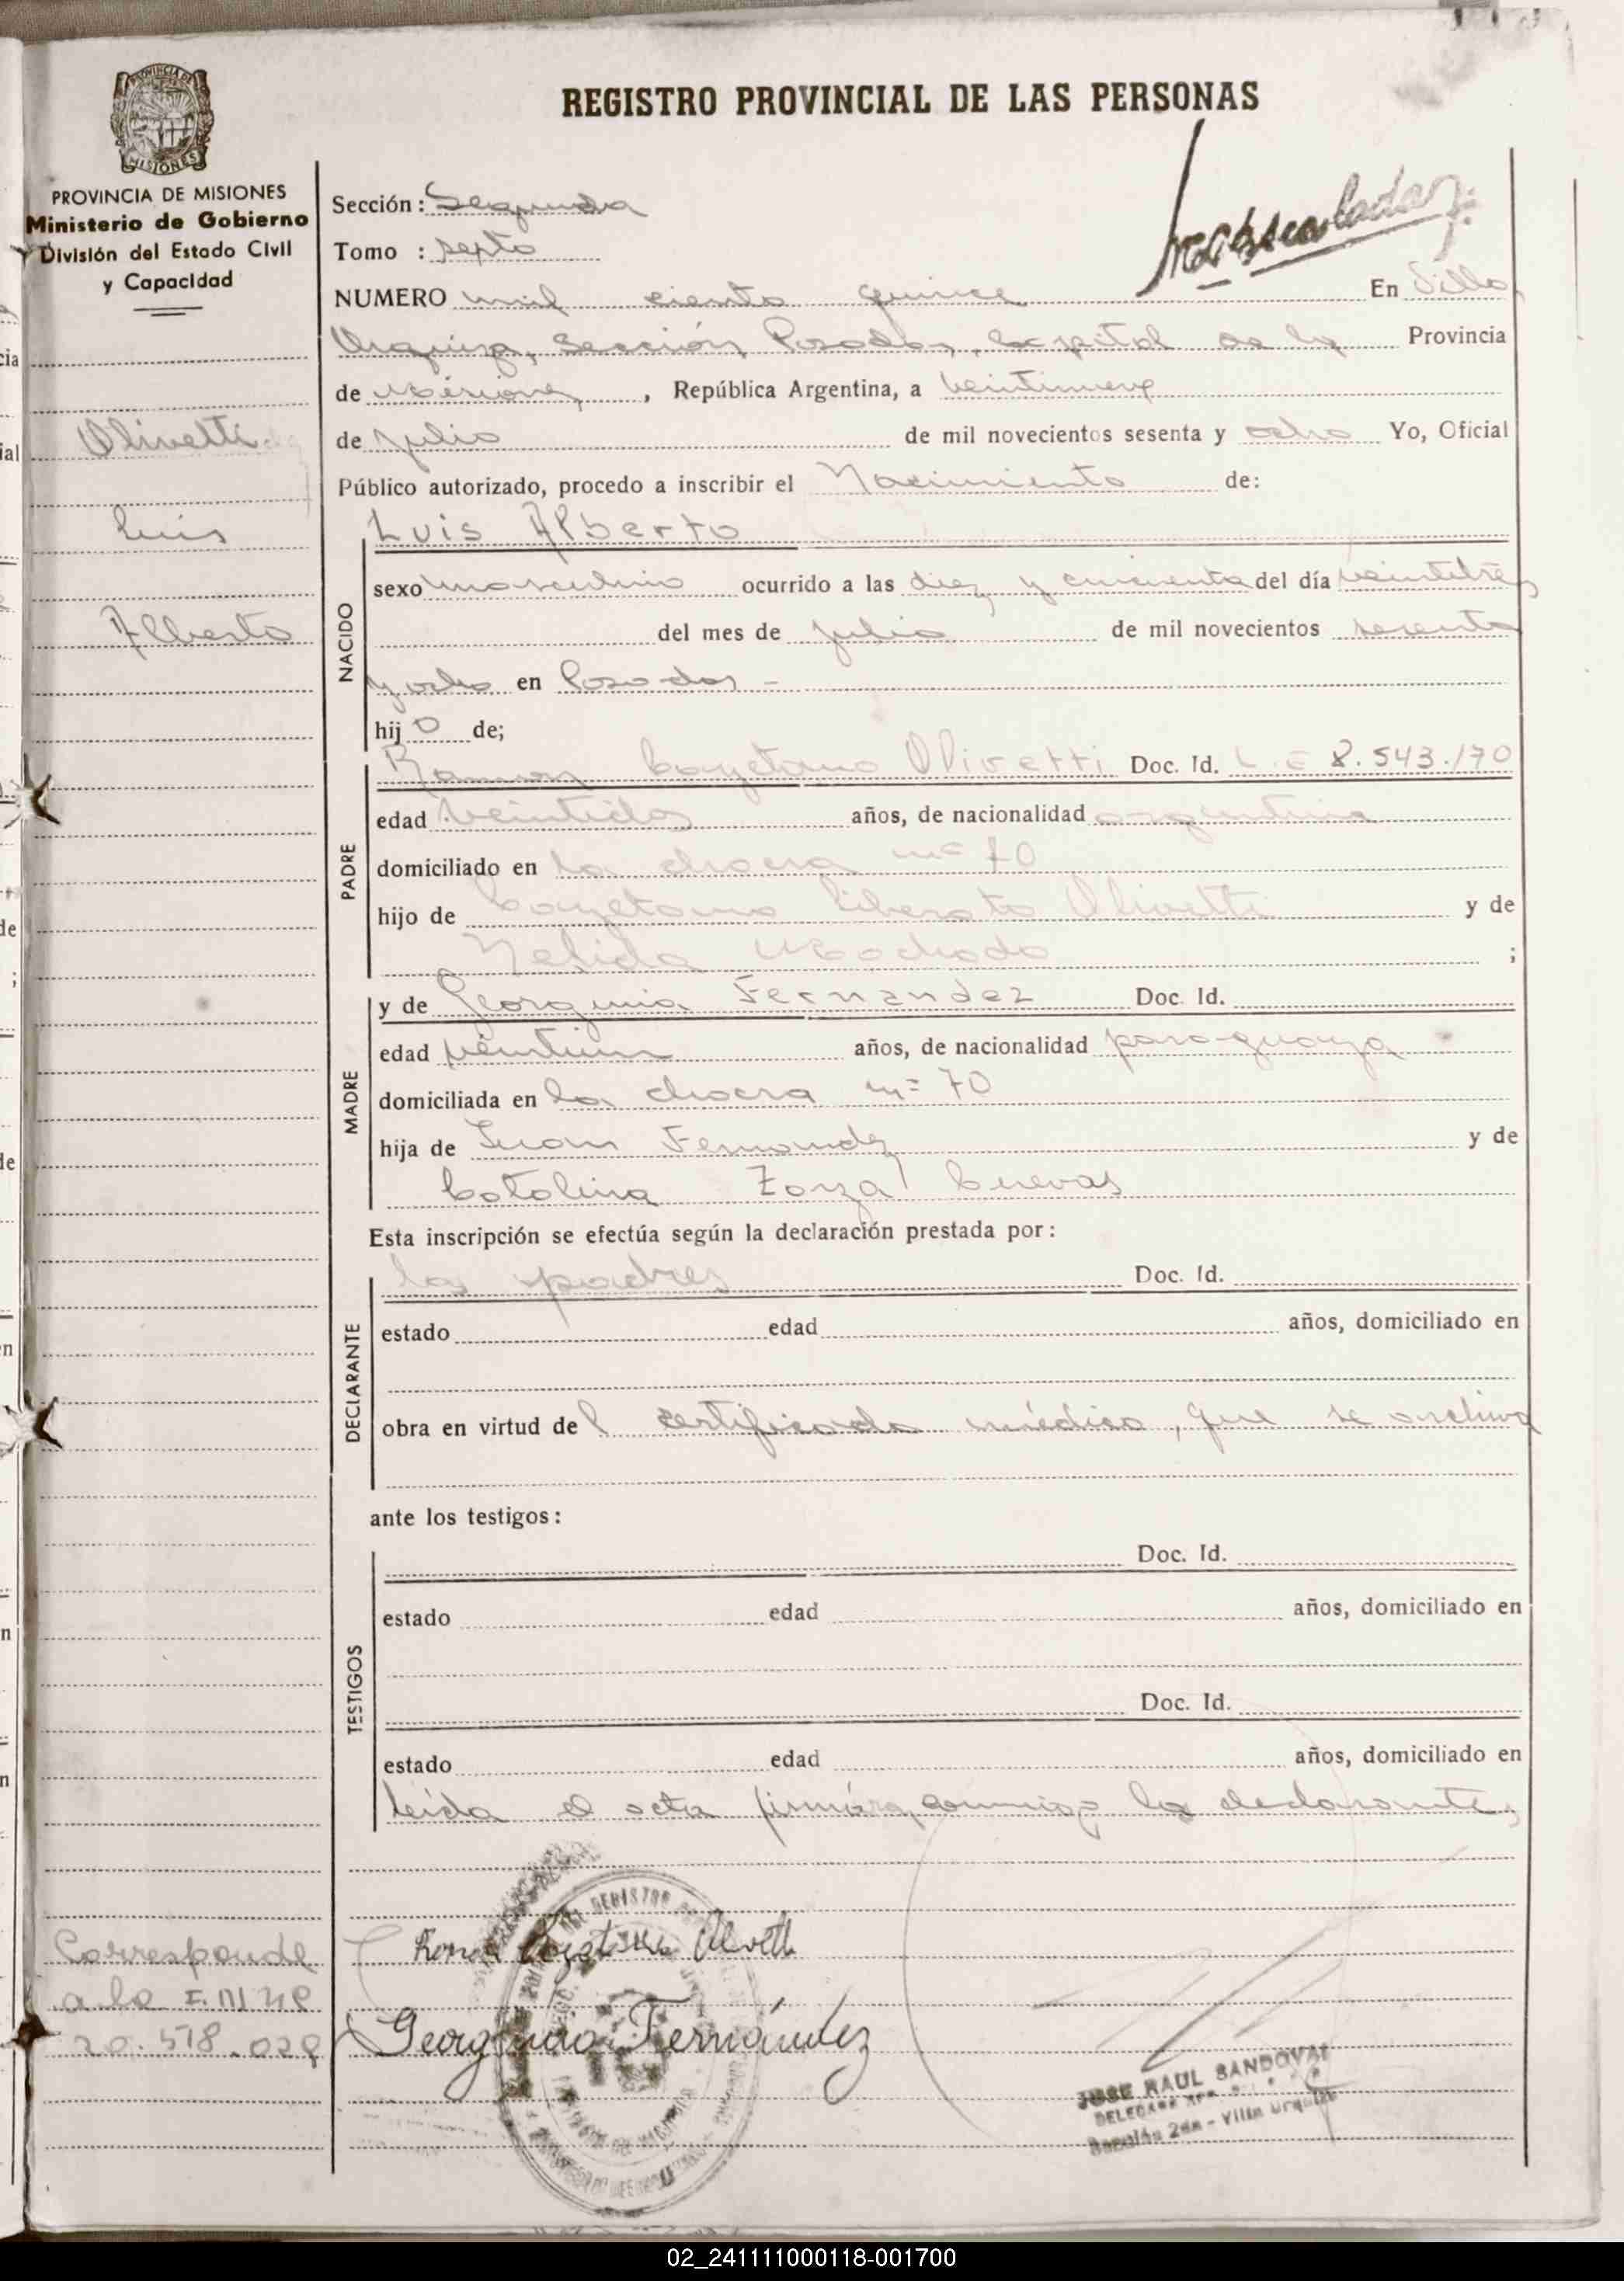 REGISTRO PROVINCIAL DE LAS PERSONAS
PROVINCIA DE MISIONES
Ministerio de Gobierno
División del Estado Civil
y Capacidad
Olivetti
Luis
Alberto
Sección: Segunda
Tomo :
NUMERO mil ciento quince En Villa
Urquiza, Sección Posadas, Capital de la Provincia
de Misiones, República Argentina, a veintinueve
de julio de mil novecientos sesenta y ocho Yo, Oficial
Público autorizado, procedo a inscribir el Nacimiento de:
NACIDO
Luis Alberto
sexo masculino ocurrido a las diez y cincuenta del día veintitres
del mes de julio de mil novecientos sesenta
y ocho en Posadas -
hijo de;
PADRE
Ramon Cayetano Olivetti Doc. Id. L. E 8.543.170
edad veintidos años, de nacionalidad argentina
domiciliado en la chacra nº 70
hijo de Cayetano Liberato Olivetti y de
Nelida Machado ;
MADRE
y de Georgina Fernandez Doc. Id.
edad veintiun años, de nacionalidad paraguaya
domiciliada en la chacra nº 70
hija de Juan Fernandez y de
Catalina Cuevas
Esta inscripción se efectúa según la declaración prestada por:
DECLARANTE
los padres Doc. Id.
estado edad años, domiciliado en
obra en virtud del certificado médico, que se archiva
ante los testigos:
TESTIGOS
Doc. Id.
estado edad años, domiciliado en
Doc. Id.
estado edad años, domiciliado en
leida el acta conmigo los declarantes
Corresponde
a la
20.518.029
Olivetti
Georgina Fernández
JOSE RAUL SANDOVAL
Sección 2da - Villa Urquiza
02_241111000118-001700